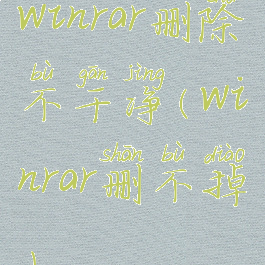 winrar删除
bù gān jìng
不干净(wi
shān bù diào
nrar删不掉
)